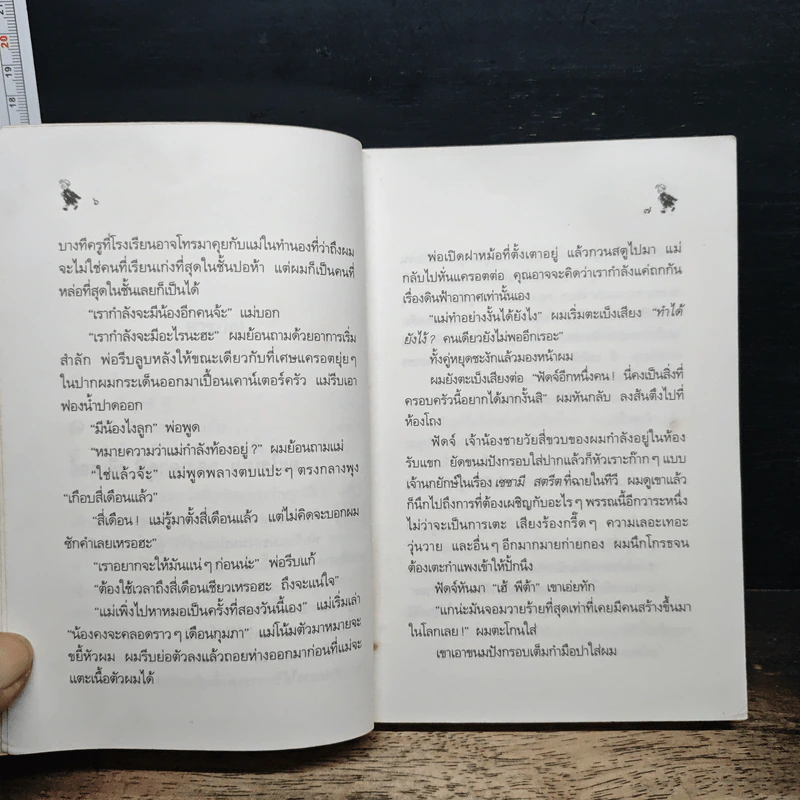 21
20
19
18
๖
บางทีครูที่โรงเรียนอาจโทรมาคุยกับแม่ในทำนองที่ว่าถึงผม
จะไม่ใช่คนที่เรียนเก่งที่สุดในชั้นปอห้า แต่ผมก็เป็นคนที่
หล่อที่สุดในชั้นเลยก็เป็นได้
“เรากำลังจะมีน้องอีกคนจ้ะ” แม่บอก
“เรากำลังจะมีอะไรนะฮะ” ผมย้อนถามด้วยอาการเริ่ม
สำลัก พ่อรีบลูบหลังให้ขณะเดียวกับที่เศษแครอตยุ่ยๆ
ในปากผมกระเด็นออกมาเปื้อนเคาน์เตอร์ครัว แม่รีบเอา
ฟองน้ำปาดออก
“มีน้องไงลูก” พ่อพูด
“หมายความว่าแม่กำลังท้องอยู่?” ผมย้อนถามแม่
“ใช่แล้วจ้ะ” แม่พูดพลางตบแปะๆ ตรงกลางพุง
“เกือบสี่เดือนแล้ว”
“สี่เดือน! แม่รู้มาตั้งสี่เดือนแล้ว แต่ไม่คิดจะบอกผม
ซักคำเลยเหรอฮะ”
“เราอยากจะให้มันแน่ๆ ก่อนน่ะ” พ่อรีบแก้
“ต้องใช้เวลาถึงสี่เดือนเชียวเหรอฮะ ถึงจะแน่ใจ”
“แม่เพิ่งไปหาหมอเป็นครั้งที่สองวันนี้เอง” แม่เริ่มเล่า
“น้องคงจะคลอดราวๆ เดือนกุมภา” แม่โน้มตัวมาหมายจะ
ขยี้หัวผม ผมรีบย่อตัวลงแล้วถอยห่างออกมาก่อนที่แม่จะ
แตะเนื้อตัวผมได้
๗
พ่อเปิดฝาหม้อที่ตั้งเตาอยู่ แล้วกวนสตูไปมา แม่
กลับไปหั่นแครอตต่อ คุณอาจจะคิดว่าเรากำลังแค่ถกกัน
เรื่องดินฟ้าอากาศเท่านั้นเอง
“แม่ทำอย่างงั้นได้ยังไง” ผมเริ่มตะเบ็งเสียง “ทำได้
ยังไง้? คนเดียวยังไม่พออีกเรอะ”
ทั้งคู่หยุดชะงักแล้วมองหน้าผม
ผมยังตะเบ็งเสียงต่อ “ฟัดจ์อีกหนึ่งคน! นี่คงเป็นสิ่งที่
ครอบครัวนี้อยากได้มากงั้นสิ” ผมหันกลับ ลงส้นตึงไปที่
ห้องโถง
ฟัดจ์ เจ้าน้องชายวัยสี่ขวบของผมกำลังอยู่ในห้อง
รับแขก ยัดขนมปังกรอบใส่ปากแล้วก็หัวเราะก๊ากๆ แบบ
เจ้านกยักษ์ในเรื่อง เซซามี สตรีตที่ฉายในทีวี ผมดูเขาแล้ว
ก็นึกไปถึงการที่ต้องเผชิญกับอะไรๆ พรรณนี้อีกวาระหนึ่ง
ไม่ว่าจะเป็นการเตะ เสียงร้องกรี๊ดๆ ความเลอะเทอะ
วุ่นวาย และอื่นๆ อีกมากมายก่ายกอง ผมนึกโกรธจน
ต้องเตะกำแพงเข้าให้ปั้กนึง
ฟัดจ์หันมา “เฮ้ พีต้า” เขาเอ่ยทัก
“แกน่ะมันจอมวายร้ายที่สุดเท่าที่เคยมีคนสร้างขึ้นมา
ในโลกเลย!” ผมตะโกนใส่
เขาเอาขนมปังกรอบเต็มกำมือปาใส่ผม